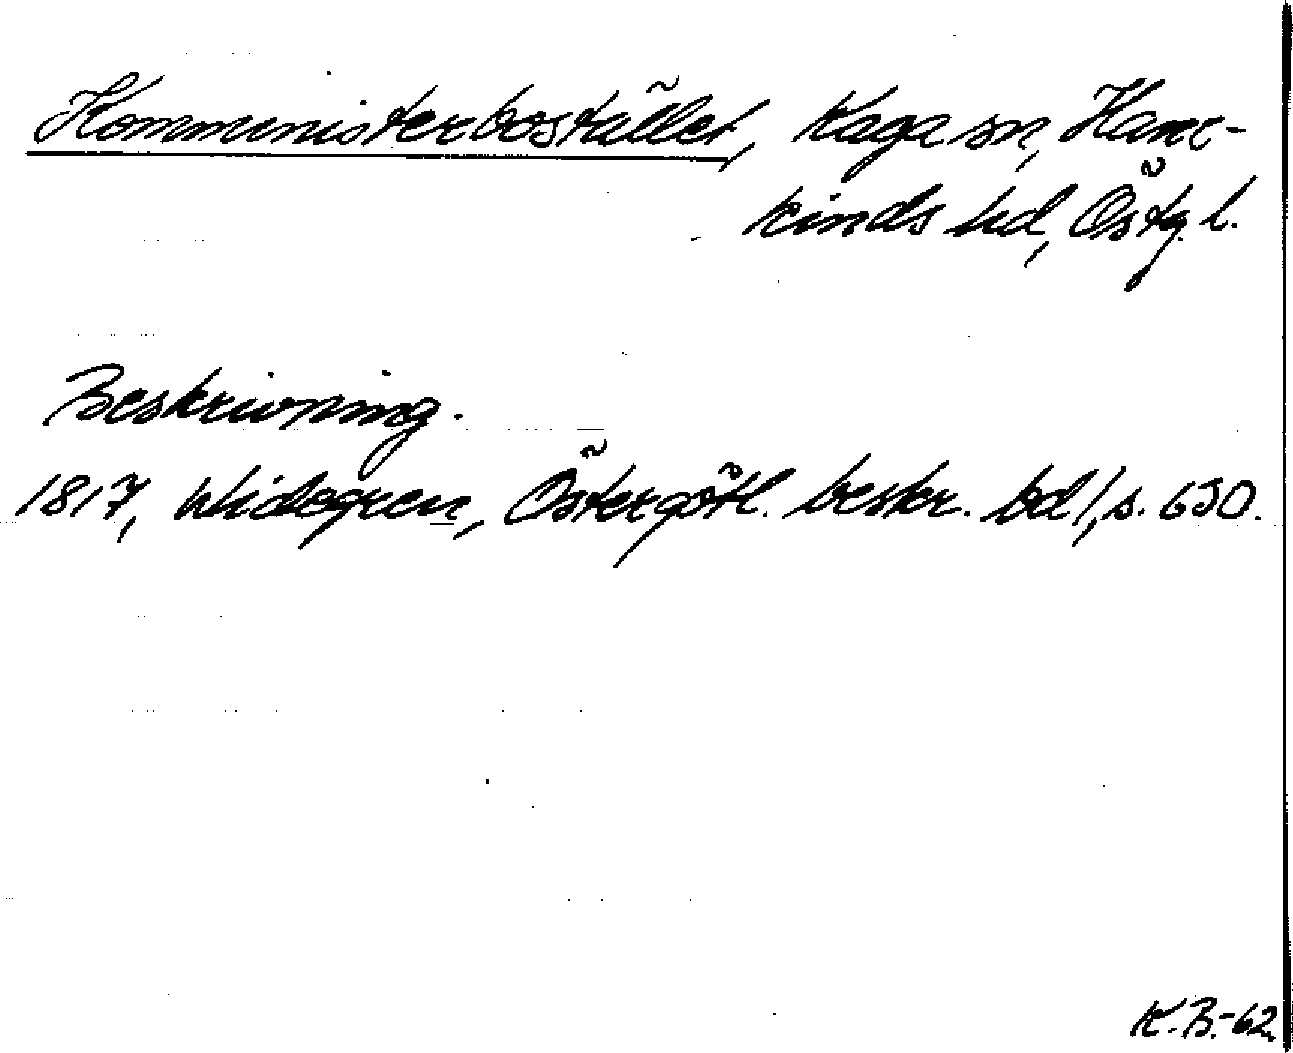 Kommunisterbostället, Kaga sn, Hane-
kinds hd, Östg. l.
Beskrivning.
1817, Widegren, Östergötl. beskr. bd 1, s. 630.
K.B.-62